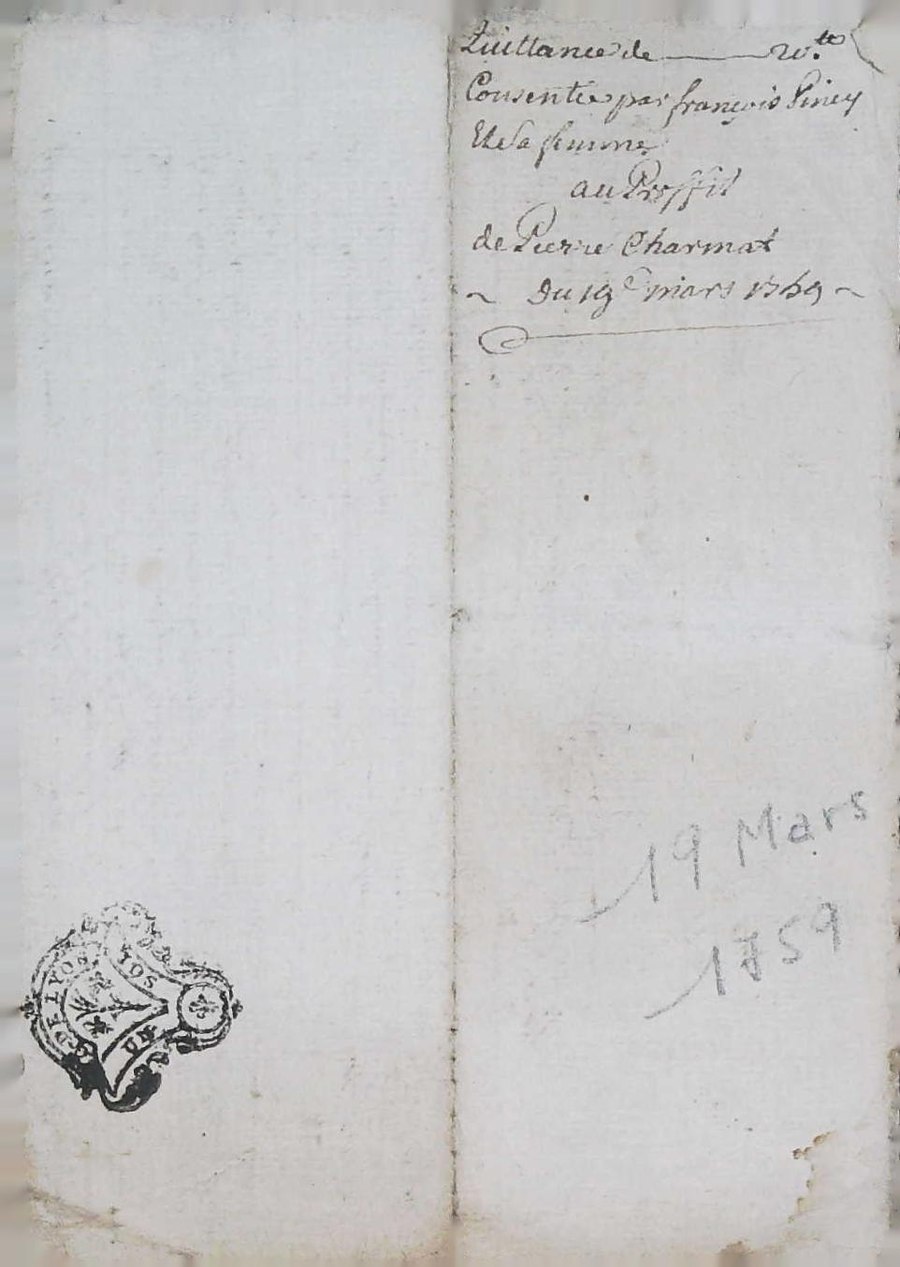 Quittance de 20.tt
Consentie par françois Piney
Et Sa femme
au Proffit
de Pierre Charmat
~ Du 19e mars 1769 ~
19 Mars
1759
DE LYON
SOLS
UN